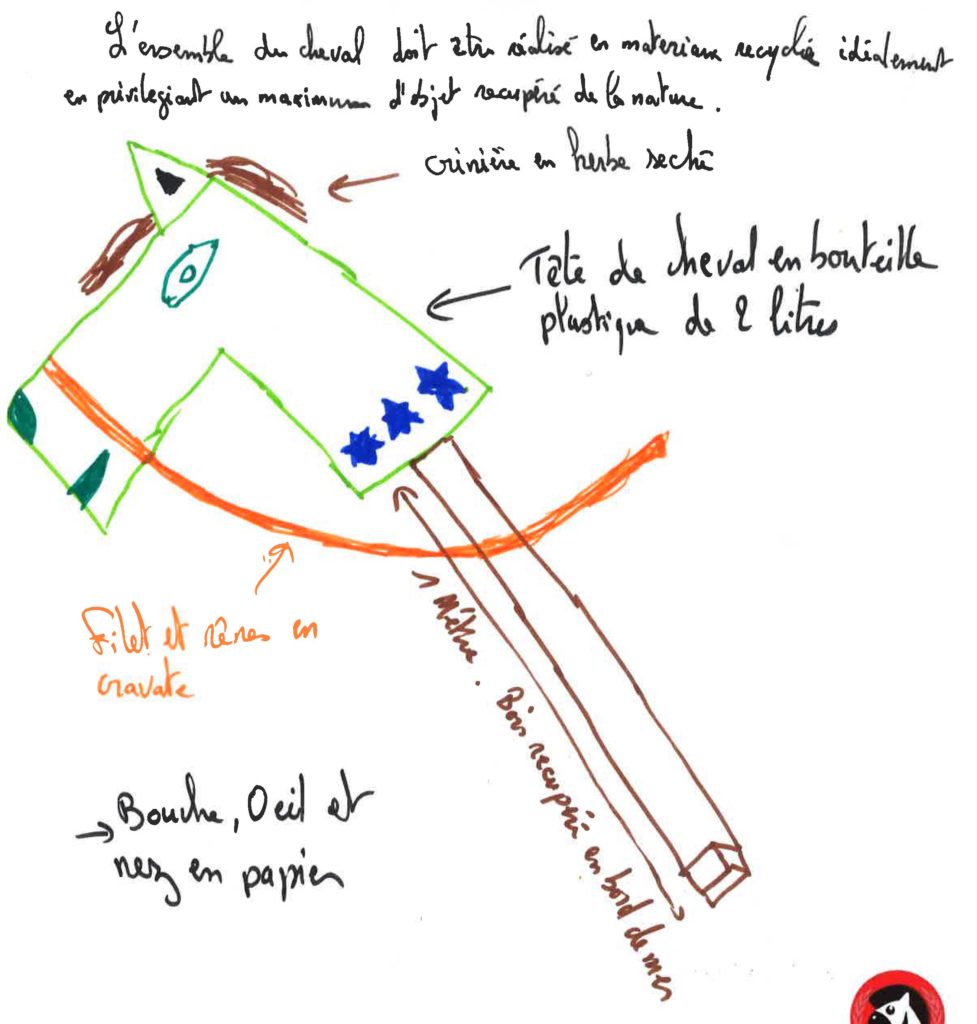 L'ensemble du cheval doit être réalisé en materiaux recyclé idéalement
en privilegiant un maximum d'objet recupéré de la nature.
crinière en herbe seché
Tête de cheval en bouteille
plastique de 2 litres
Filet et rênes en
cravate
1 Mètre. Bois recupéré en bord de mer
→ Bouche, Oeil et
nez en papier